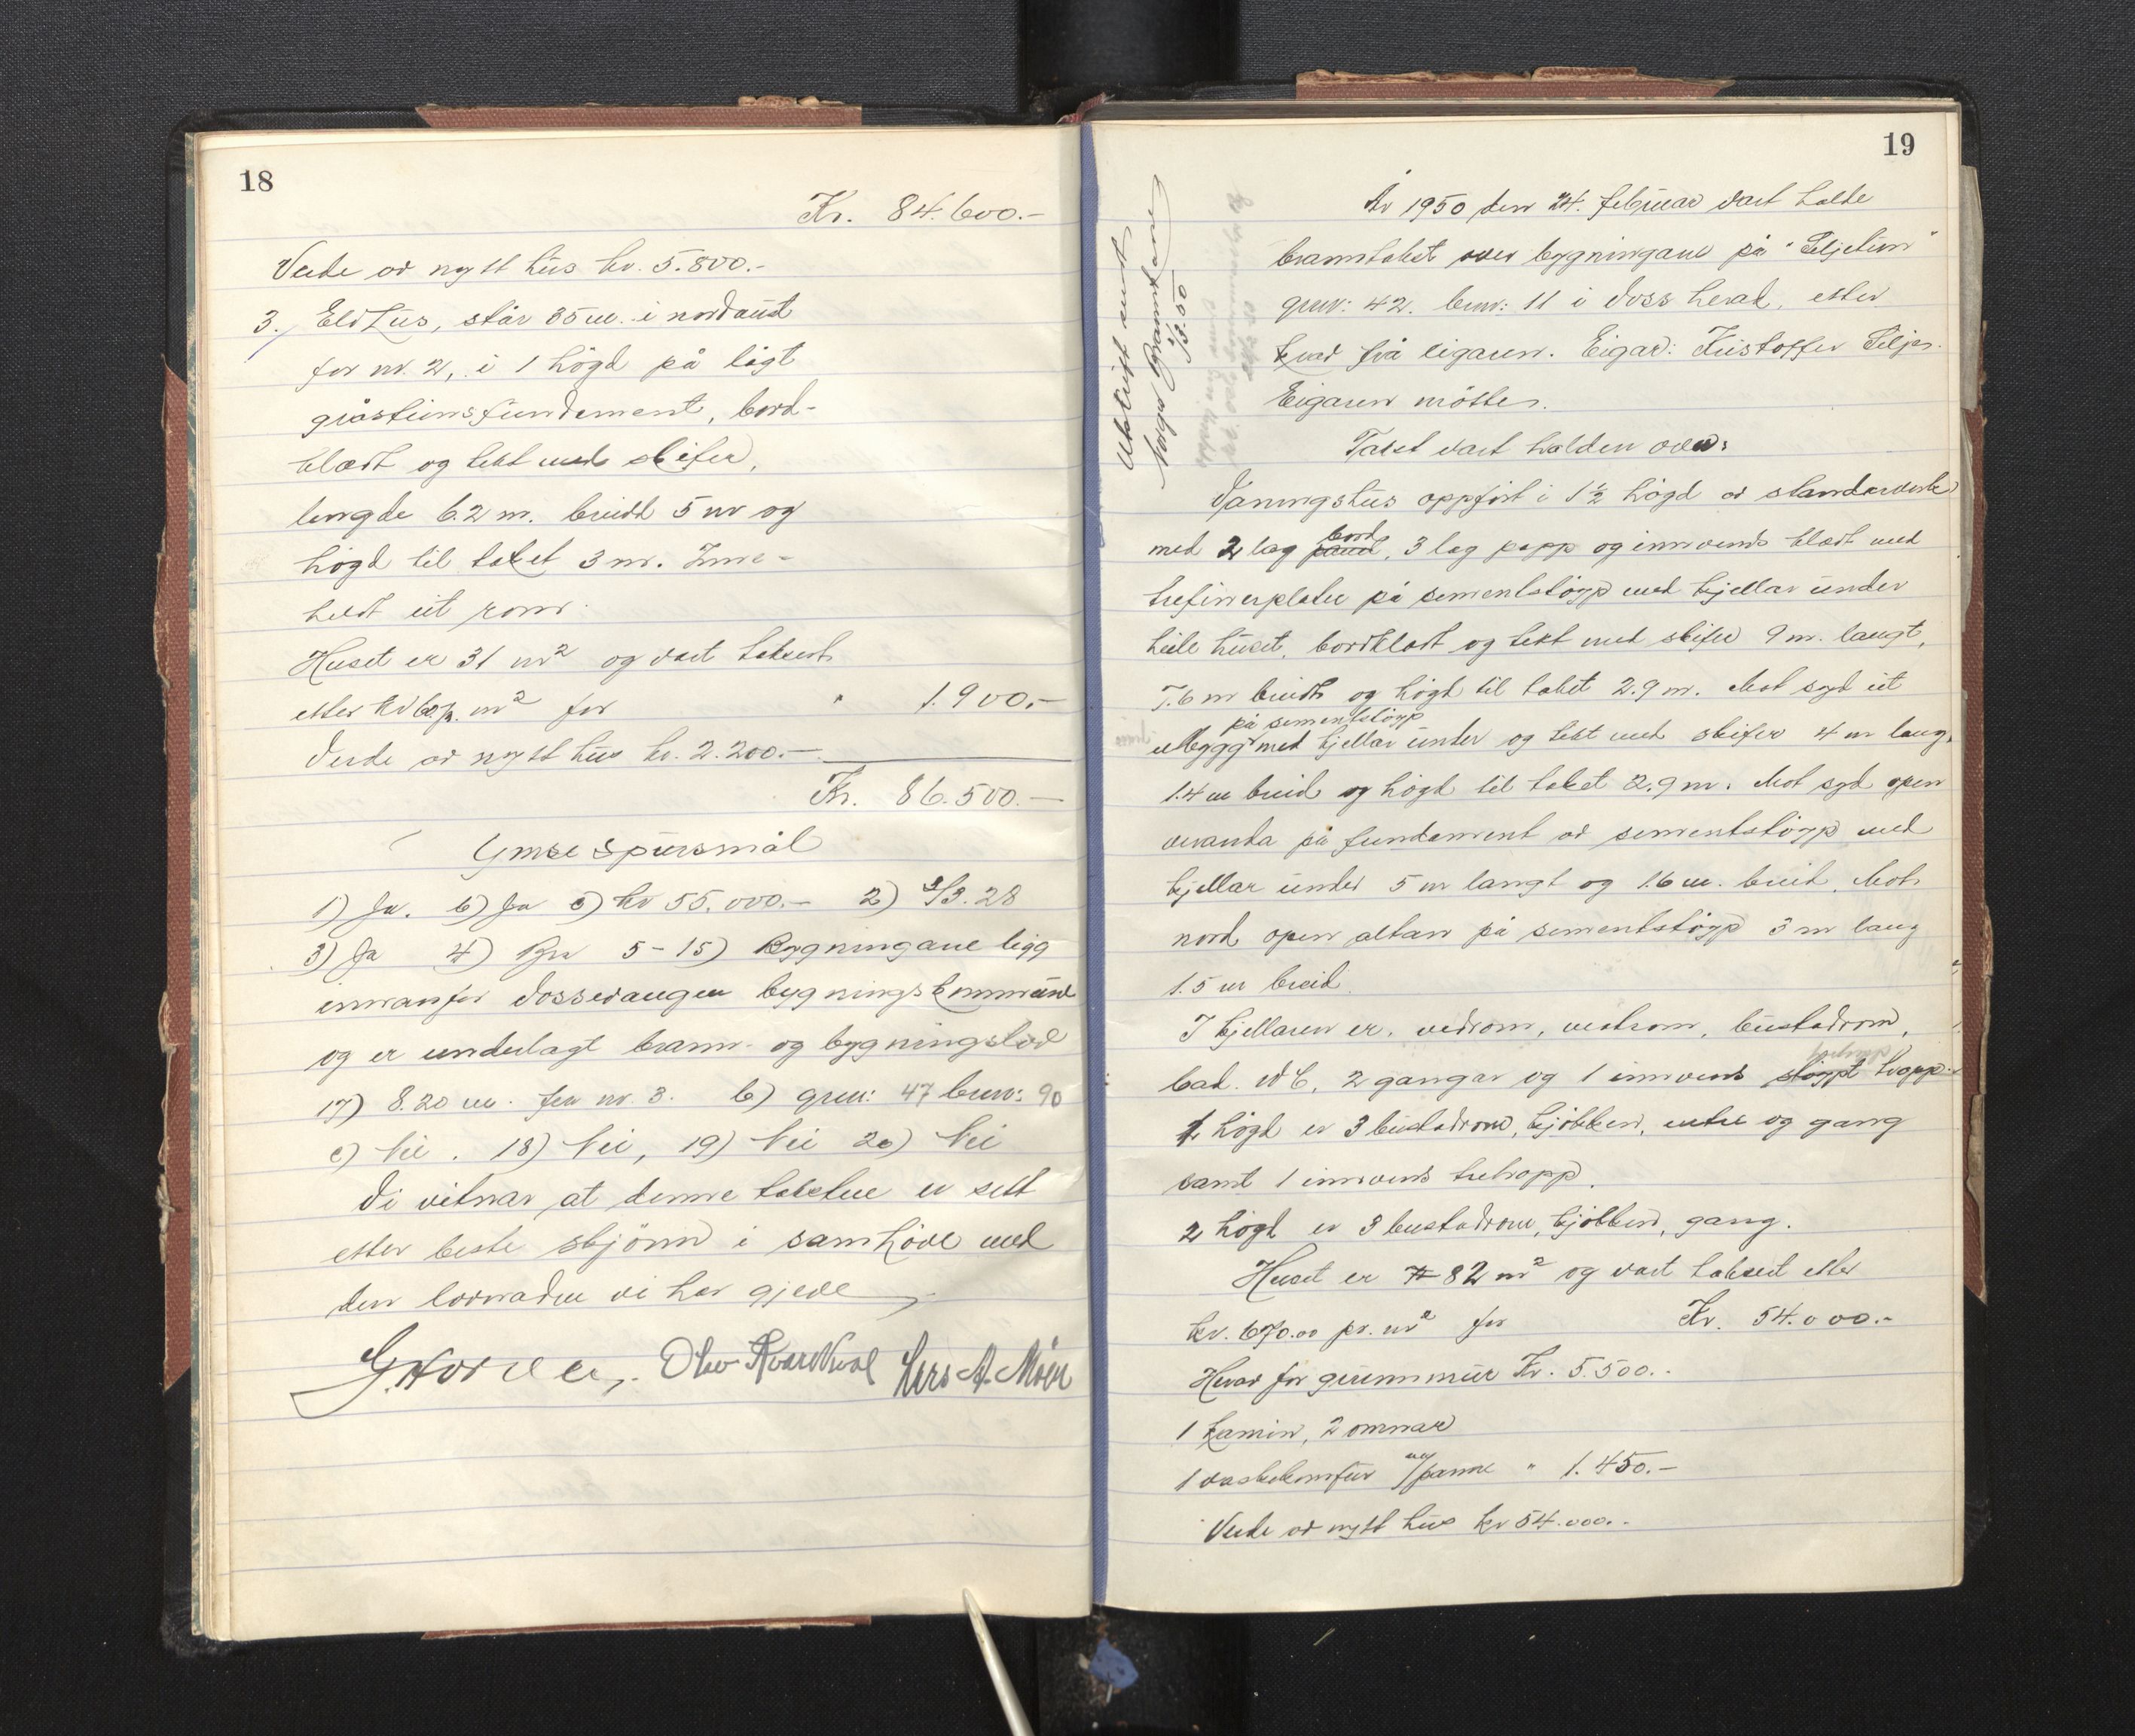 18
Kr. 84.600.-
Verde av nytt hus kr. 5.800.-
3. Eldhus, står 35 m. i nordaust
for nr. 2, i 1 högd på lågt
gråsteinsfundament, bord-
klædt og tekt med skifer,
lengde 6.2 m. breidd 5 m og
högd til taket 3 m. Inne-
held eit rom.
Huset er 31 m² og vart taksert
etter kr 60 pr. m² for " 1.900.-
Verde av nytt hus kr. 2.200.-
Kr. 86.500.-
Ymse spursmål
1) Ja. b) Ja c) kr 55.000.- 2) 2/3.28
3) Ja 4) Bra 5-15) Bygningane ligg
innanfor Vossevangen bygningskommune
og er underlagt brann- og bygningslov
17) 8.20 m. for nr. 3. b) gnr: 47 bnr: 90
c) Nei. 18) Nei, 19) Nei 20) Nei
Vi vitnar at denne takster er sett
etter beste skjönn i samhöve med
den lovnaden vi har gjeve
Lars A. Møen
19
Utskrift sendt
Norges Branntrand
1/3.50
År 1950 den 24. februar vart halde
branntakst over bygningane på "Seljetun"
gnr: 42. bnr: 11 i Voss herad, etter
krav frå eigaren. Eigar: Kristoffer Seljes.
Eigaren mötte.
Takst vart halden over:
Våningshus oppfört i 1½ högd av standarverk
med 2 lag bord, 3 lag papp og innvends klædt med
trefinerplater på sementstöyp med kjellar under
heile huset, bordklædt og tekt med skifer 9 m. langt,
7.6 m breidt og högd til taket 2.9 m. Mot syd eit
utbygg på sementstöyp med kjellar under og tekt med skifer 4 m lang,
1.4 m breid og högd til taket 2.9 m. Mot syd open
veranda på fundament av sementstöyp med
kjellar under 5 m langt og 1.6 m. breid. Mot
nord open altan på sementstöyp 3 m lang
1.5 m breid.
I kjellaren er, vedrom, matrom, bustadrom,
bad. WC, 2 gangar og 1 innvends stöypt tropp.
1 högd er 3 bustadrom, kjökken, entre og gang
samt 1 innvends tretropp.
2 högd er 3 bustadrom, kjökken, gang.
Huset er 82 m² og vart taksert etter
kr. 670.00 pr. m² for Kr. 54.000.-
Herav for grunnmur Kr. 5.500.-
1 kamin, 2 omnar
1 vaskekomfur m/panne " 1.450.-
Verde av nytt hus kr 54.000.-